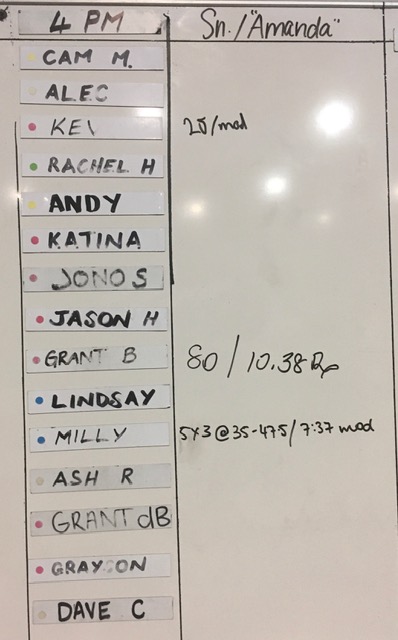 4 PM Sn./"Amanda"
CAM M.
ALEC
KEV 25/mod
RACHEL H
ANDY
KATINA
JONO S
JASON H
GRANT B 80/10.38 Rx
LINDSAY
MILLY 5x3@35-475/7:37 mod
ASH R
GRANT dB
GRAYSON
DAVE C